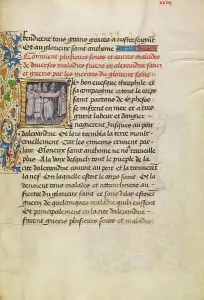 rendirent tous grans graces a nostre seignr
Et au glorieux saint anthoine
Comment plusieurs sours et autres malades
de diverses maladies furent en alexandrie sains
et gueris par les merites du glorieux saint
le bon evesque theophile et
sa compaignie atout le corps
saint partans de
se mirent en mer et a tres
grand labeur et dangier
nagierent Jusques au port
dalexandrie Et lors trembla la terre moult
cruellement Car les ennemis crioient par
lair Glorieux saint anthoine ne nous travaille
plus A la voix desquelz tout le pueple de la
cite dalexandrie acourut au port et la trouverent
la nef En laquelle estoit le corps saint Et la
tous malades et
du glorieux saint Et au surplus furent
gueris de quelconques maladie quilz eussent
Et principalement en la cite dalexandrie
furent gueris plusieurs sours et malades